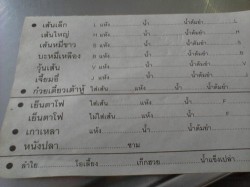 • เส้นเล็ก แห้ง น้ำ น้ำต้มยำ
• เส้นใหญ่ แห้ง น้ำ น้ำต้มยำ
• เส้นหมี่ขาว แห้ง น้ำ น้ำต้มยำ
• บะหมี่เหลือง แห้ง น้ำ น้ำต้มยำ
• วุ้นเส้น แห้ง น้ำ น้ำต้มยำ
• เจี้ยมอี๋ แห้ง น้ำ น้ำต้มยำ
• ก๋วยเตี๋ยวเต้าหู้ ใส่เส้น แห้ง น้ำ น้ำต้มยำ
• เย็นตาโฟ ใส่เส้น แห้ง น้ำ น้ำต้มยำ
• เย็นตาโฟ ไม่ใส่เส้น แห้ง น้ำ น้ำต้มยำ
• เกาเหลา แห้ง น้ำ น้ำต้มยำ
• หนังปลา ชาม
• ลำไย โอเลี้ยง เก๊กฮวย น้ำแข็งเปล่า